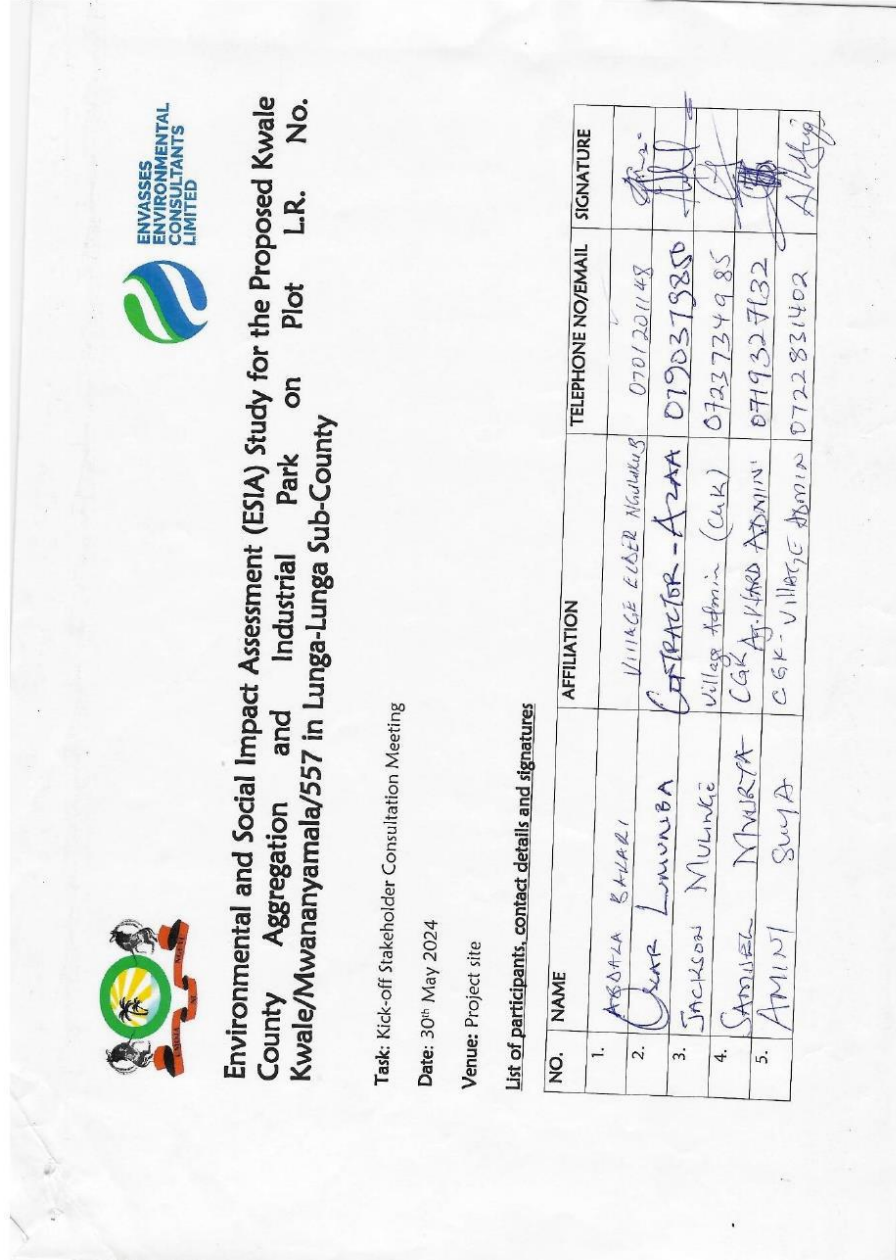 ENVASSES
ENVIRONMENTAL
CONSULTANTS
LIMITED
Environmental and Social Impact Assessment (ESIA) Study for the Proposed Kwale
County Aggregation and Industrial Park on Plot L.R. No.
Kwale/Mwananyamala/557 in Lunga-Lunga Sub-County
Task: Kick-off Stakeholder Consultation Meeting
Date: 30th May 2024
Venue: Project site
List of participants, contact details and signatures
NO. NAME AFFILIATION TELEPHONE NO/EMAIL SIGNATURE
1. BAKARI VILLAGE ELDER 0701201148
2. CONTRACTOR - AZAA 0790379850
3. JACKSON Village Admin 0723734985
4. SAMUEL CGK Ag. WARD ADMIN 0719327132
5. AMINI CGK - VILLAGE ADMIN 0722831402